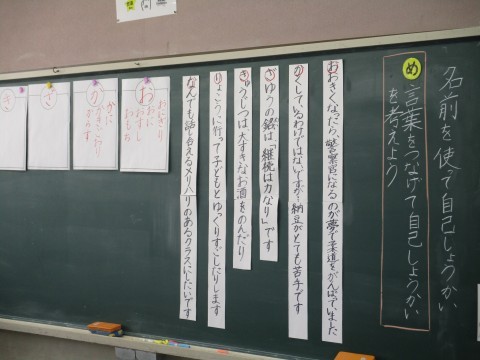 名前を使って自己しょうかい
め 言葉をつなげて自己しょうかい
を考えよう
おおきくなったら、警察官になるのが夢で柔道をがんばっていました
かくしているわけではないですが…納豆がとても苦手です
ざゆうの銘は「継続は力なり」です
きゅうじつは大すきなお酒をのんだり
りょこうに行って子どもとゆっくりすごしたりします
なんでも話し合えるメリハリのあるクラスにしたいです
お
おにぎり
おに
おすし
おもち
か
かに
ざ
き